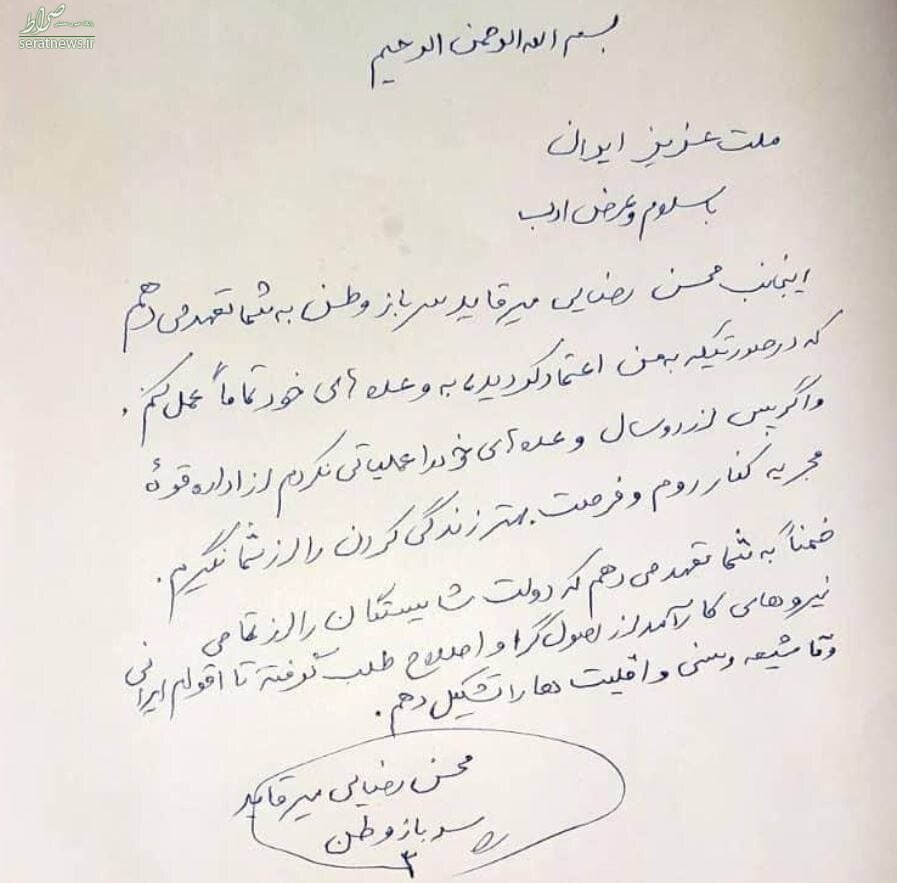 صراط
پایگاه خبری تحلیلی
seratnews.ir
بسم الله الرحمن الرحیم
ملت عزیز ایران
با سلام و عرض ادب
اینجانب محسن رضایی میرقاید سرباز وطن به شما تعهد می دهم
که در صورتیکه به من اعتماد کردید، به وعده های خود تماماً عمل کنم.
و اگر پس از دو سال وعده های خود را عملیاتی نکردم از اداره قوهٔ
مجریه کنار روم و فرصت بهتر زندگی کردن را از شما نگیرم.
ضمناً به شما تعهد می دهم که دولت شایستگان را از تمامی
نیروهای کارآمد از اصول گرا و اصلاح طلب گرفته تا اقوام ایرانی
و تا شیعه و سنی و اقلیت ها را تشکیل دهم.
محسن رضایی میرقاید
سرباز وطن
۳